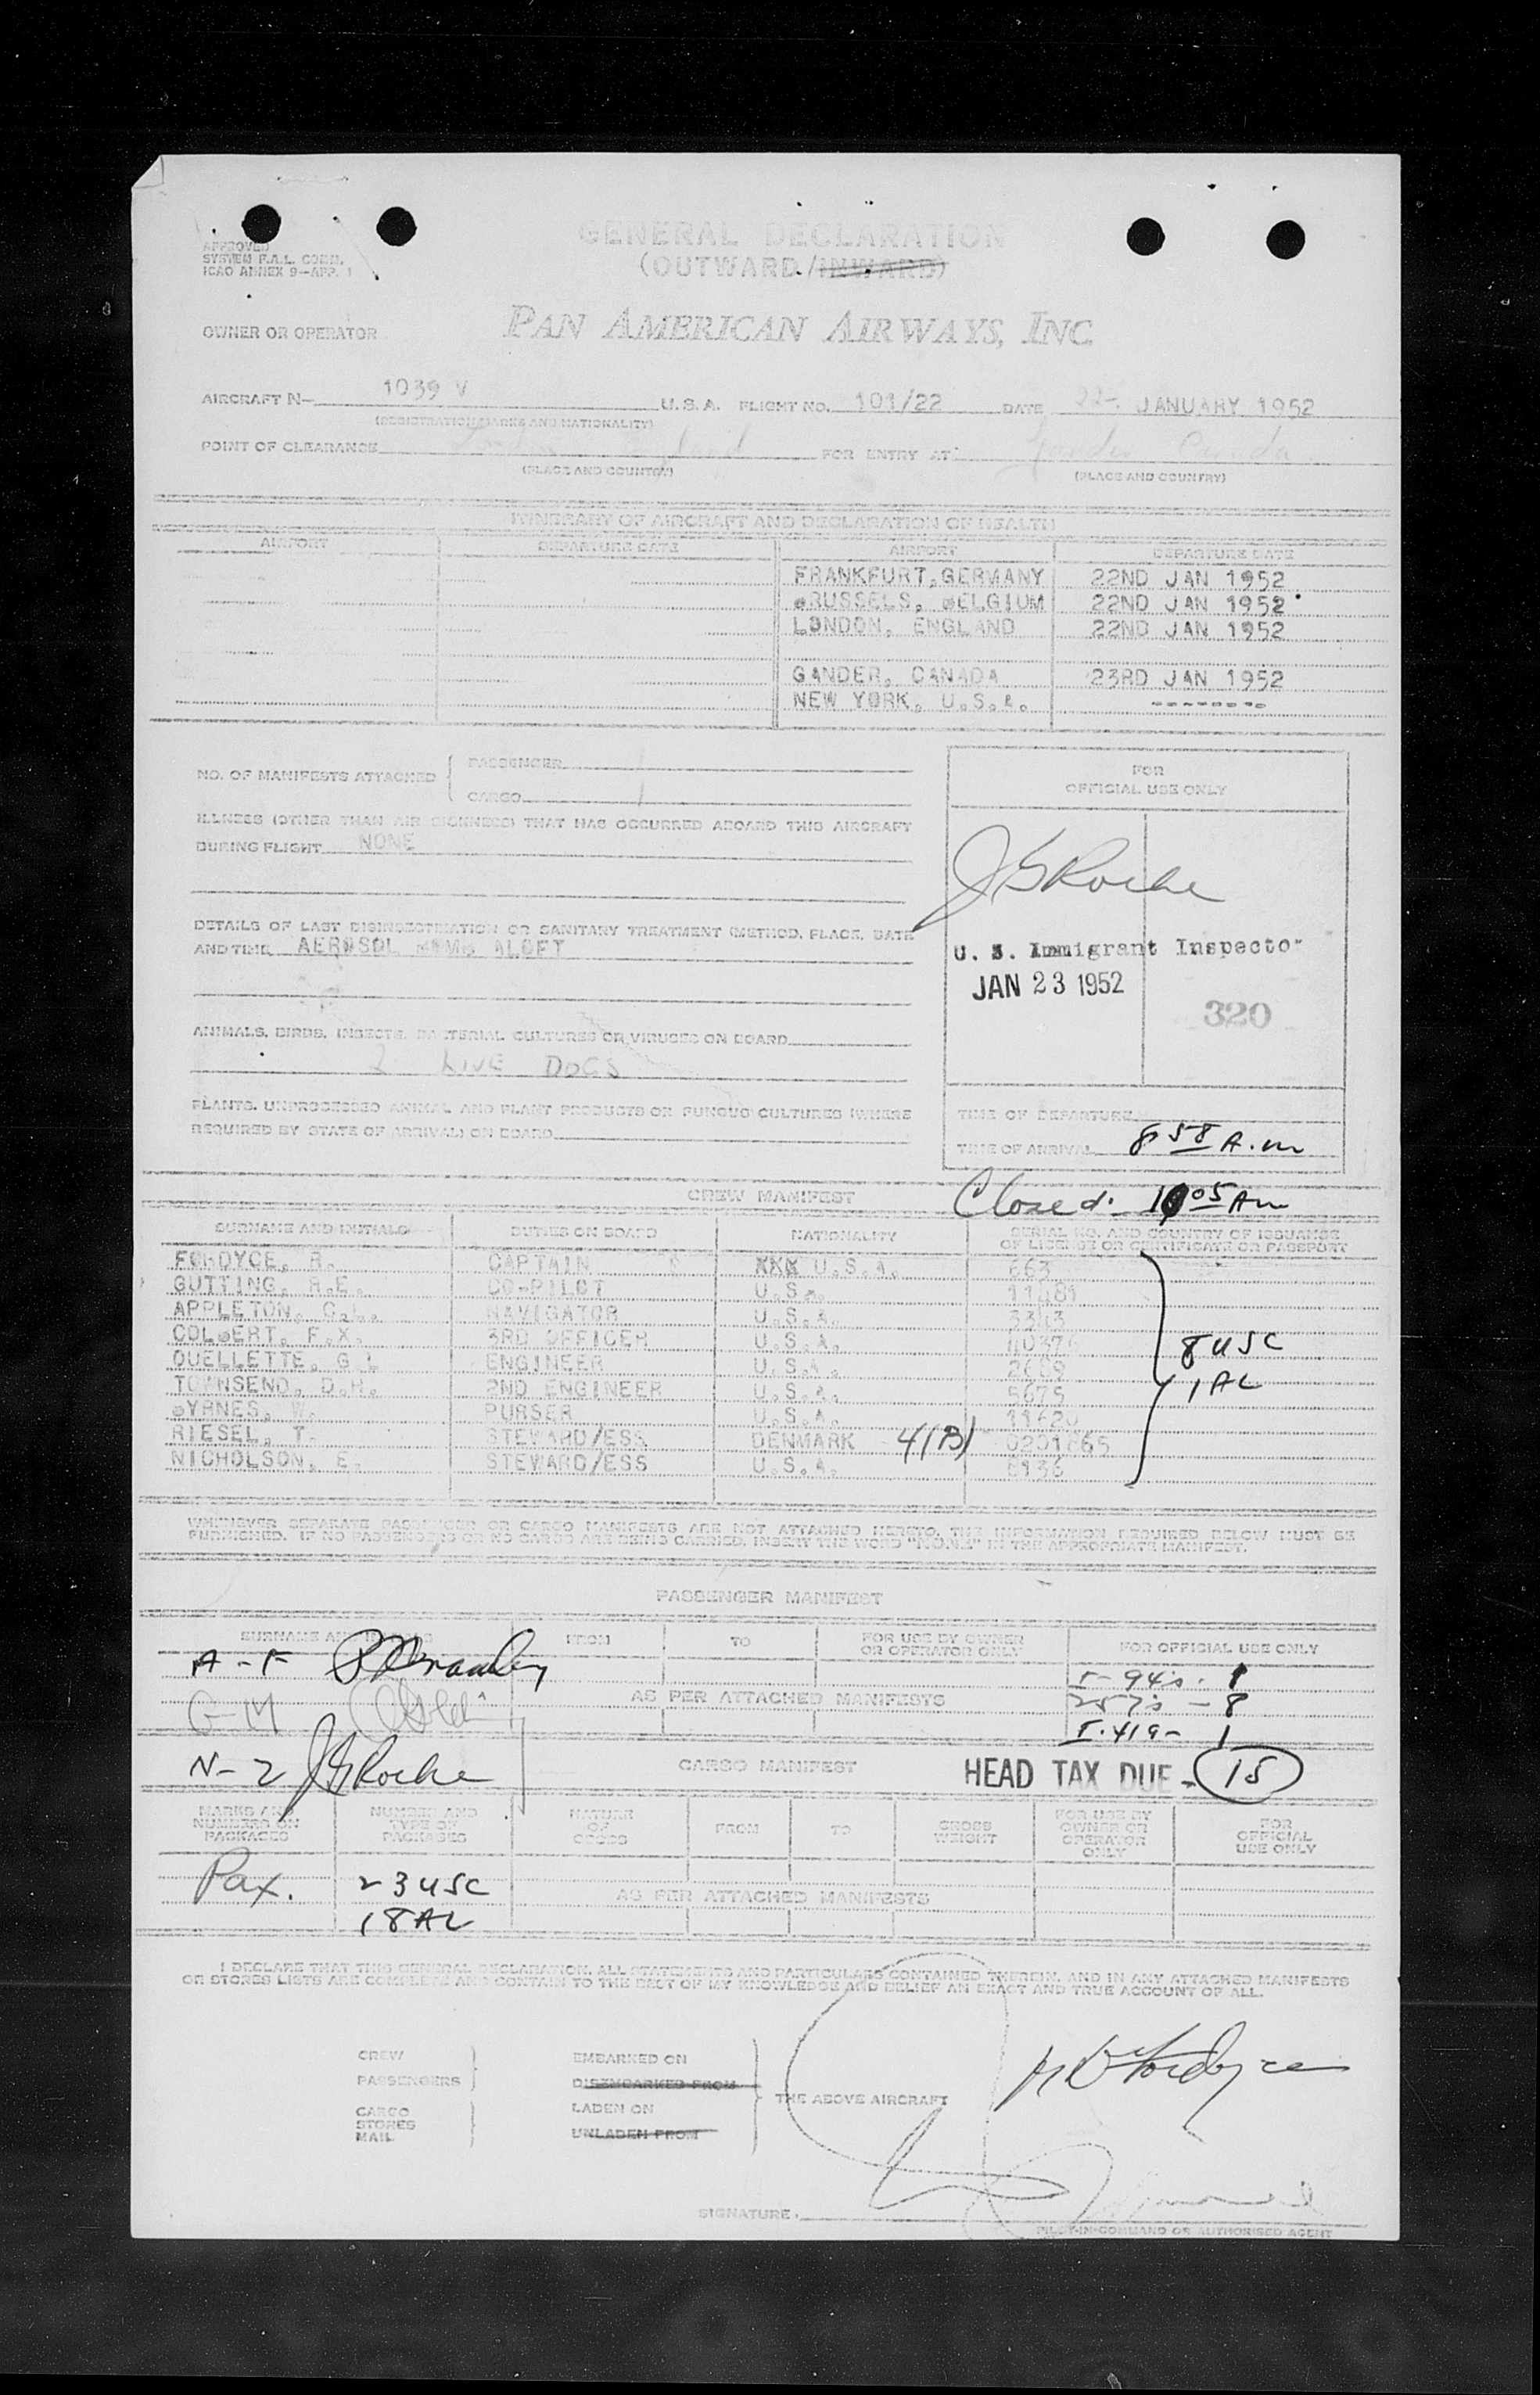 APPROVED
SYSTEM F.A.L. COMM.
ICAO ANNEX 9—APP. 1
GENERAL DECLARATION
(OUTWARD/INWARD)
OWNER OR OPERATOR
PAN AMERICAN AIRWAYS, INC.
AIRCRAFT N— 1039 V U.S.A. FLIGHT NO. 101/22 DATE 22- JANUARY 1952
(REGISTRATION MARKS AND NATIONALITY)
POINT OF CLEARANCE London England FOR ENTRY AT Gander Canada
(PLACE AND COUNTRY) (PLACE AND COUNTRY)
ITINERARY OF AIRCRAFT AND DECLARATION OF HEALTH
AIRPORT DEPARTURE DATE AIRPORT DEPARTURE DATE
FRANKFURT, GERMANY 22ND JAN 1952
BRUSSELS, BELGIUM 22ND JAN 1952
LONDON, ENGLAND 22ND JAN 1952
GANDER, CANADA 23RD JAN 1952
NEW YORK, U.S.A. --------
NO. OF MANIFESTS ATTACHED
PASSENGER 1
CARGO 1
ILLNESS (OTHER THAN AIR SICKNESS) THAT HAS OCCURRED ABOARD THIS AIRCRAFT
DURING FLIGHT NONE
DETAILS OF LAST DISINSECTIZATION OR SANITARY TREATMENT (METHOD, PLACE, DATE
AND TIME AEROSOL BOMB ALOFT
ANIMALS, BIRDS, INSECTS, BACTERIAL CULTURES OR VIRUSES ON BOARD
2 LIVE DOGS
PLANTS, UNPROCESSED ANIMAL AND PLANT PRODUCTS OR FUNGUS CULTURES (WHERE
REQUIRED BY STATE OF ARRIVAL) ON BOARD
FOR
OFFICIAL USE ONLY
J G Roche
U. S. Immigrant Inspector
JAN 23 1952
320
TIME OF DEPARTURE
TIME OF ARRIVAL 8 58 A.m
Closed. 10 05 Am
CREW MANIFEST
SURNAME AND INITIALS DUTIES ON BOARD NATIONALITY SERIAL NO. AND COUNTRY OF ISSUANCE
OF LICENSE OR CERTIFICATE OR PASSPORT
FORDYCE, R. CAPTAIN XXX U.S.A. 663
GUTTING, R.E. CO-PILOT U.S.A. 11481
APPLETON, C.L. NAVIGATOR U.S.A. 3343
COLBERT, F.X. 3RD OFFICER U.S.A.
OUELLETTE, G ENGINEER U.S.A. 2689
TOWNSEND, D.H. 2ND ENGINEER U.S.A. 5675
BYRNES, W. PURSER U.S.A.
RIESEL, T. STEWARD/ESS DENMARK 4(B)
NICHOLSON, E. STEWARD/ESS U.S.A.
8 USC
1 AL
WHENEVER SEPARATE PASSENGER OR CARGO MANIFESTS ARE NOT ATTACHED HERETO, THE INFORMATION REQUIRED BELOW MUST BE
FURNISHED. IF NO PASSENGERS OR NO CARGO ARE BEING CARRIED, INSERT THE WORD "NONE" IN THE APPROPRIATE MANIFEST.
PASSENGER MANIFEST
SURNAME AND INITIALS FROM TO FOR USE BY OWNER
OR OPERATOR ONLY FOR OFFICIAL USE ONLY
A - F
G - M
N - Z J G Roche
AS PER ATTACHED MANIFESTS
I-94s - 1
257s - 8
I-419- 1
CARGO MANIFEST
HEAD TAX DUE - 15
MARKS AND
NUMBERS ON
PACKAGES
NUMBER AND
TYPE OF
PACKAGES
NATURE
OF
GOODS
FROM
TO
GROSS
WEIGHT
FOR USE BY
OWNER OR
OPERATOR
ONLY
FOR
OFFICIAL
USE ONLY
Pax. 23 USC
18 AL
AS PER ATTACHED MANIFESTS
I DECLARE THAT THIS GENERAL DECLARATION, ALL STATEMENTS AND PARTICULARS CONTAINED THEREIN, AND IN ANY ATTACHED MANIFESTS
OR STORES LISTS ARE COMPLETE AND CONTAIN TO THE BEST OF MY KNOWLEDGE AND BELIEF AN EXACT AND TRUE ACCOUNT OF ALL.
CREW
PASSENGERS
EMBARKED ON
DISEMBARKED FROM
CARGO
STORES
MAIL
LADEN ON
UNLADEN FROM
THE ABOVE AIRCRAFT
Fordyce
SIGNATURE
PILOT-IN-COMMAND OR AUTHORISED AGENT